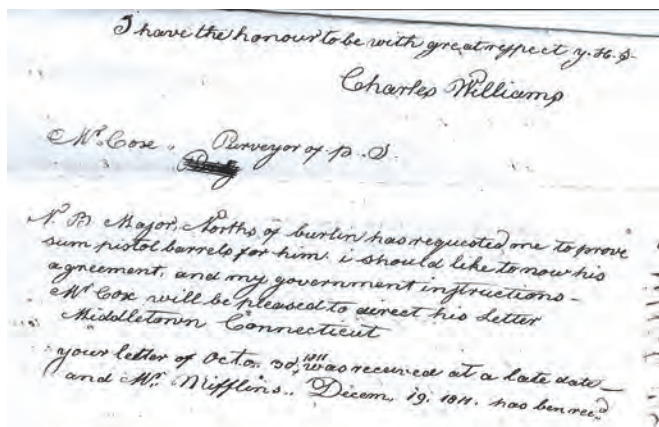 I have the honour to be with great respect y. H. S.
Charles Williams
Mr. Coxe. Purveyor of p. S.
N. B. Major. Norths of burlin has requested me to prove
sum pistol barrels for him. i should like to now his
agreement, and my government instructions -
Mr Cox will be pleased to direct his Letter
Middletown Connecticut
your letter of Octo. 30, 1811 was received at a late date -
and Mr. Mifflins. Decem. 19. 1811. has ben recd